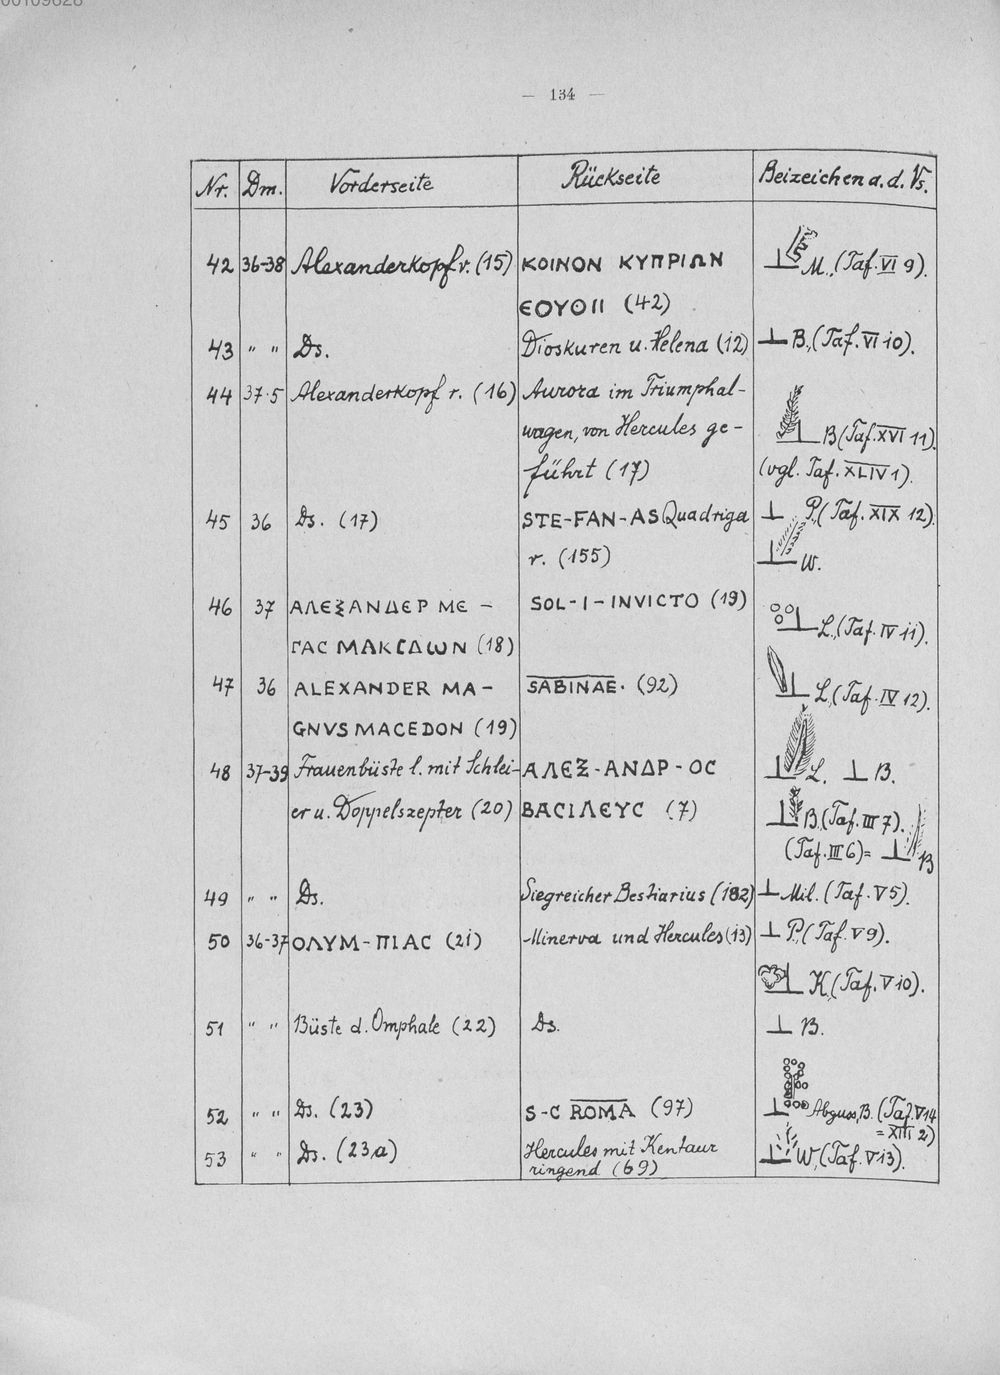 00109828
— 134 —
Nr. Dm. Vorderseite Rückseite Beizeichen a. d. Vs.
42 36-38 Alexanderkopf v. (15) ΚΟΙΝΟΝ ΚΥΠΡΙΩΝ M., (Taf. VI 9).
ΕΟΥΘΙΙ (42)
43 " " Ds. Dioskuren u. Helena (12) B., (Taf. VI 10).
44 37·5 Alexanderkopf r. (16) Aurora im Triumphal-
wagen, von Hercules ge- B (Taf. XVI 11).
führt (17) (vgl. Taf. XLIV 1).
45 36 Ds. (17) STE-FAN-AS Quadriga P., (Taf. XIX 12).
r. (155) W.
46 37 ΑΛΕΞΑΝΔΕΡ ΜΕ - SOL-I-INVICTO (19)
ΓΑС ΜΑΚϹΔωΝ (18) L., (Taf. IV 11).
47 36 ALEXANDER MA- SABINAE. (92) L., (Taf. IV 12).
GNVS MACEDON (19)
48 37-39 Frauenbüste l. mit Schlei- ΑΛΕΞ-ΑΝΔΡ-ΟС L. B.
er u. Doppelszepter (20) ΒΑСΙΛΕΥС (7) B., (Taf. III 7).
(Taf. III 6) = B
49 " " Ds. Siegreicher Bestiarius (182) Mil. (Taf. V 5).
50 36-37 ΟΛΥΜ-ΠΙΑС (21) Minerva und Hercules (13) P., (Taf. V 9).
K, (Taf. V 10).
51 " " Büste d. Omphale (22) Ds. B.
52 " " Ds. (23) S-C ROMA (97) Abguss, B. (Taf. V 14
= XIII 2)
53 " " Ds. (23a) Hercules mit Kentaur W, (Taf. V 13).
ringend (69)